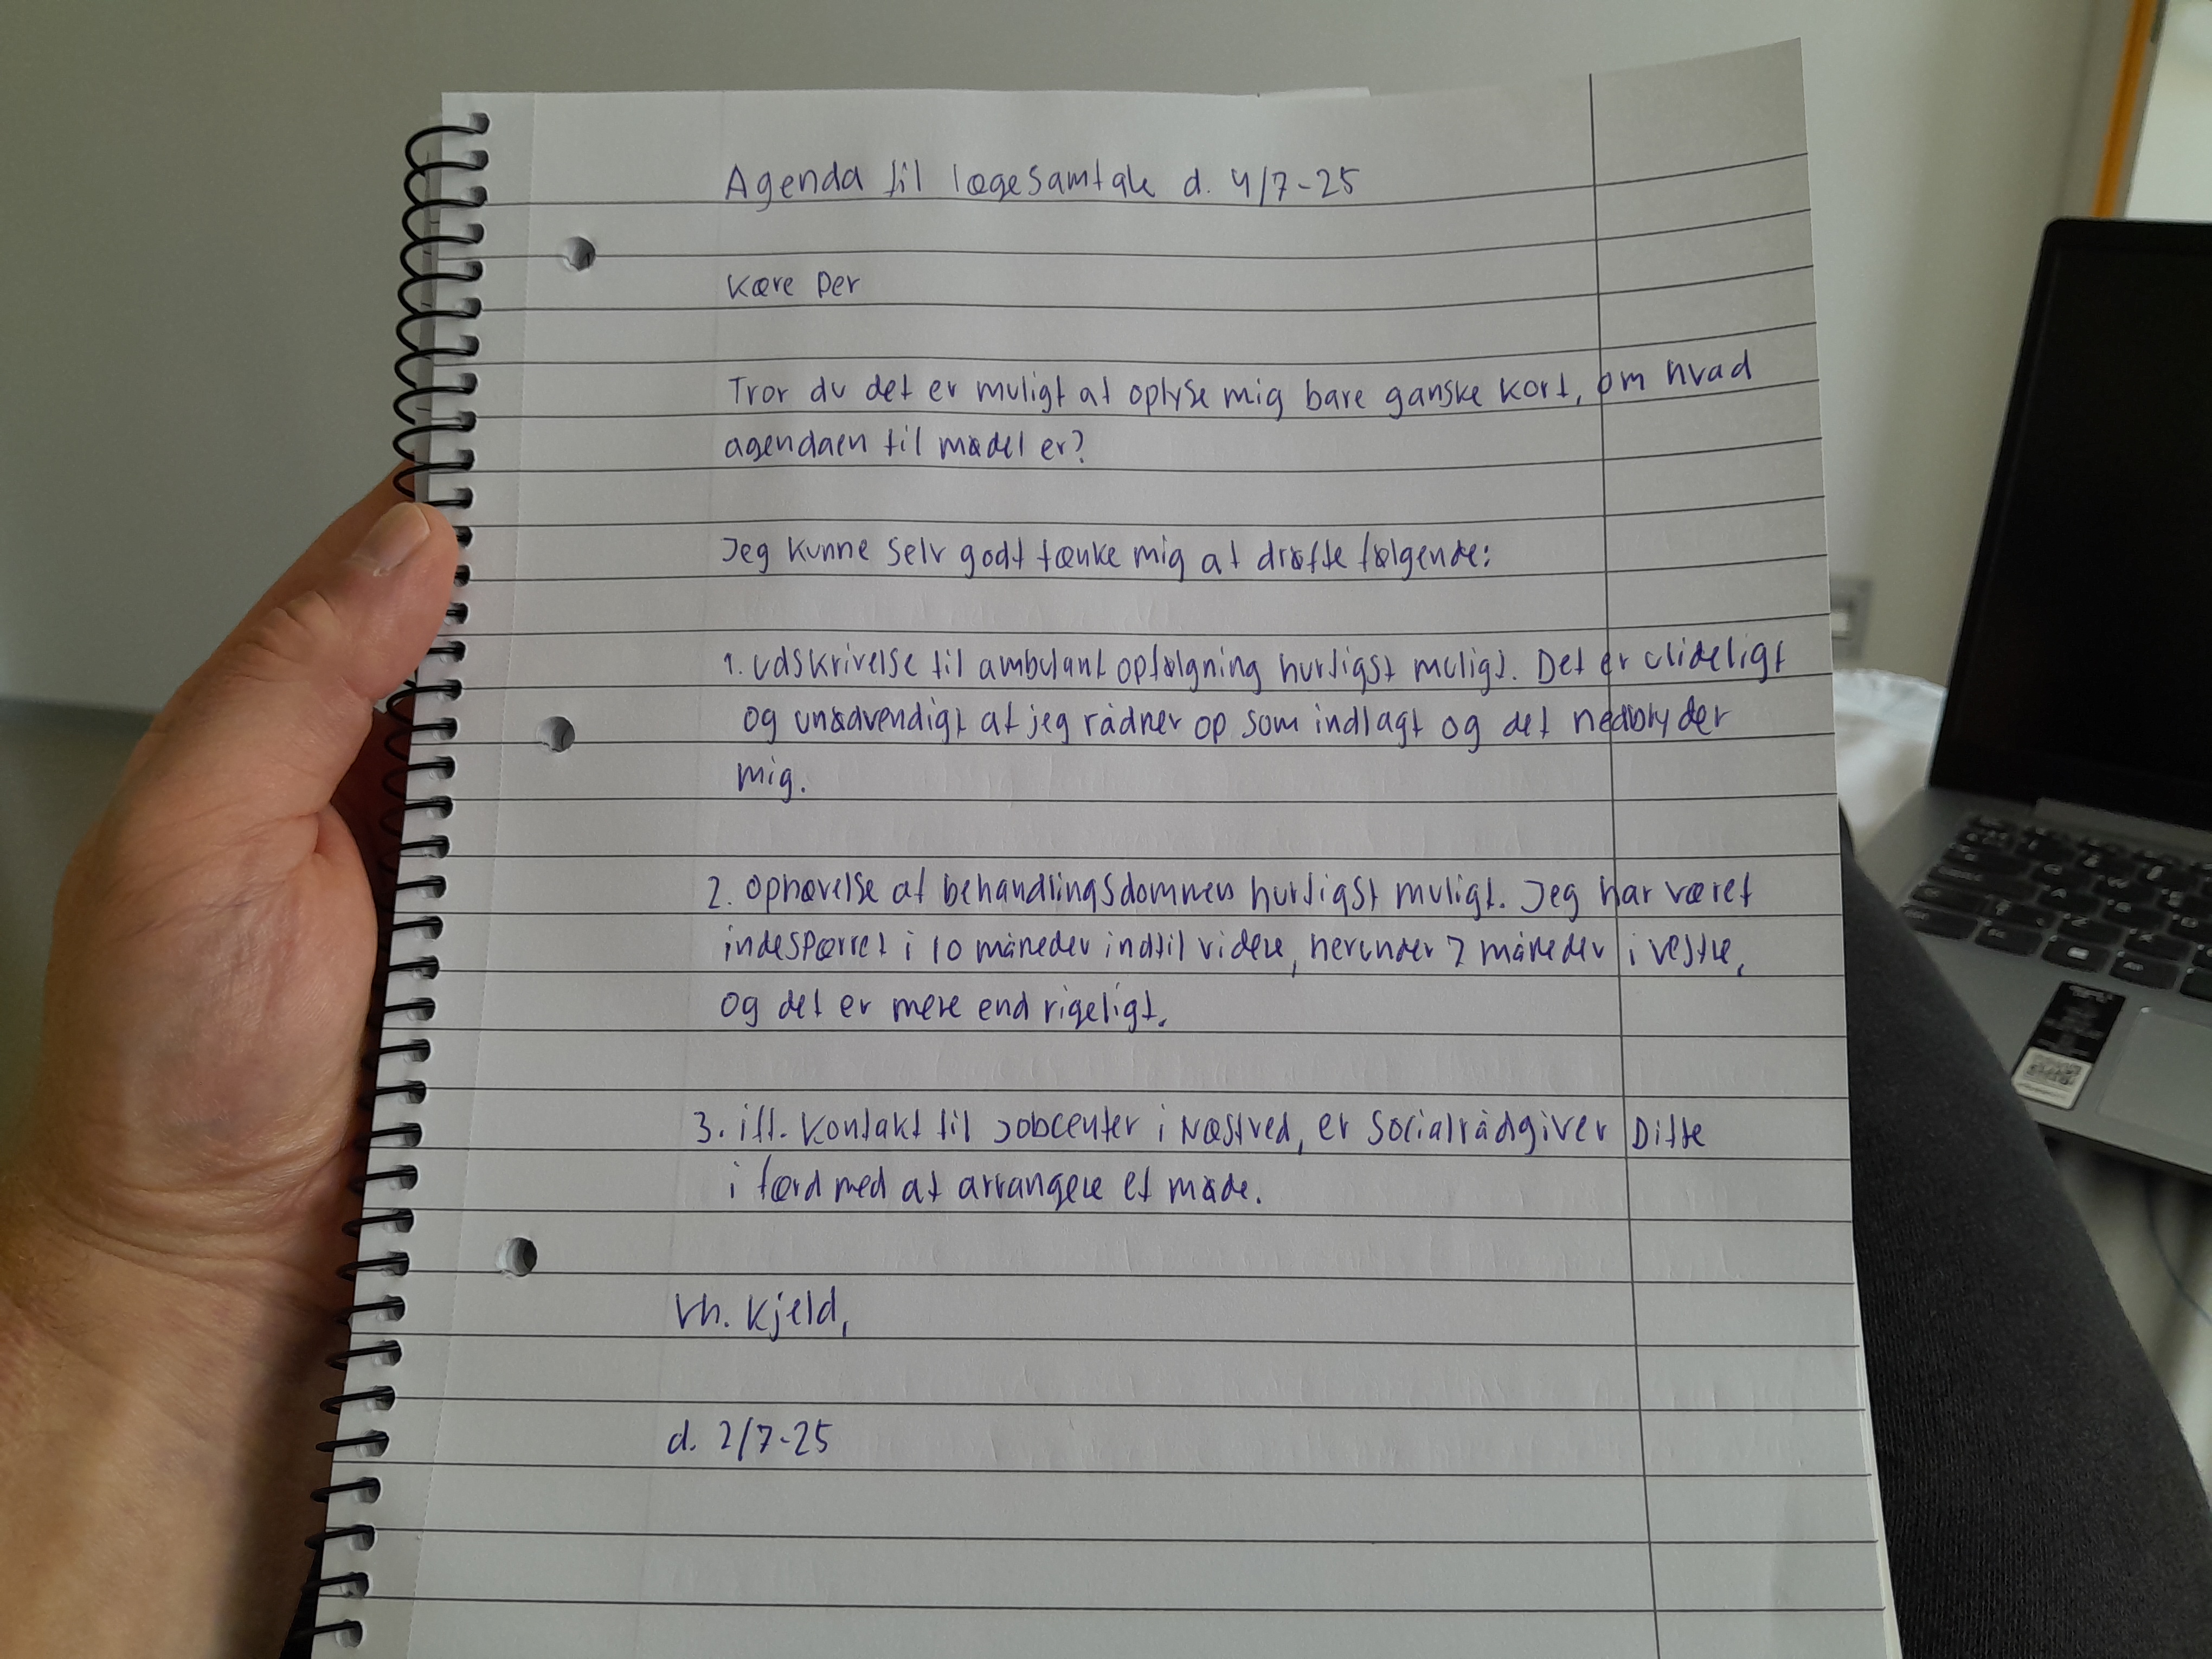 Agenda til lægesamtale d. 4/7-25
Kære Per
Tror du det er muligt at oplyse mig bare ganske kort, om hvad
agendaen til mødet er?
Jeg kunne selv godt tænke mig at drøfte følgende:
1. Udskrivelse til ambulant opfølgning hurtigst muligt. Det er ulideligt
og unødvendigt at jeg rådner op som indlagt og det nedbryder
mig.
2. Ophævelse af behandlingsdommen hurtigst muligt. Jeg har været
indespærret i 10 måneder indtil videre, herunder 7 måneder i Vestre,
og det er mere end rigeligt.
3. ift. kontakt til Jobcenter i Næstved, er Socialrådgiver Ditte
i færd med at arrangere et møde.
Vh. Kjeld,
d. 2/7-25